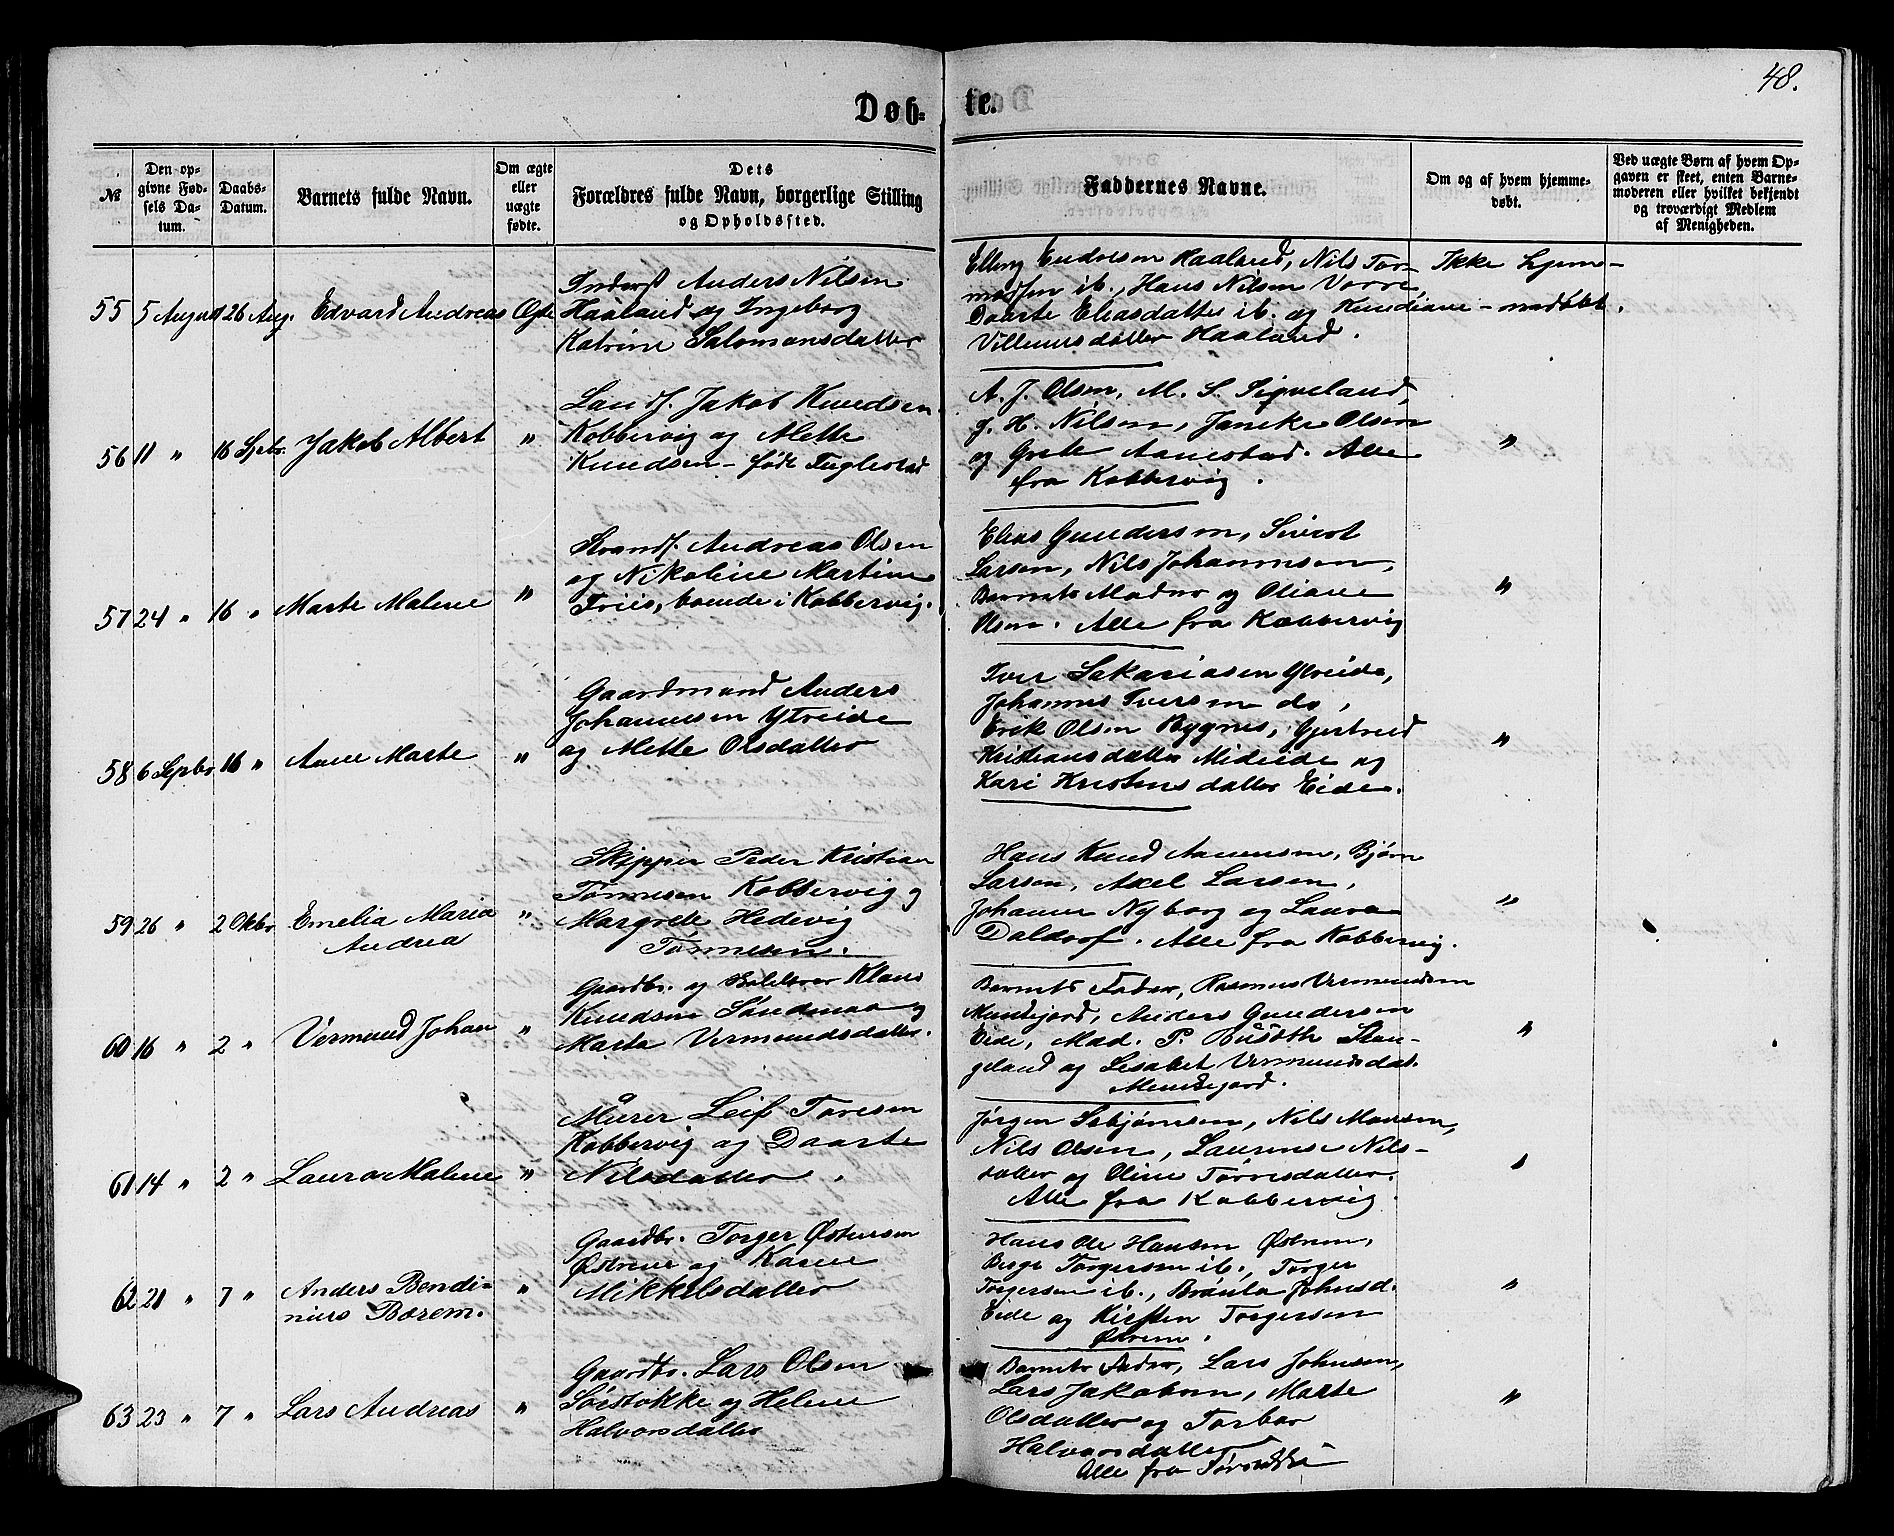 48.
Døb-
te.
№
Den op-
givne Fød-
sels Da-
tum.
Daabs-
Datum.
Barnets fulde Navn.
Om ægte
eller
uægte
fødte.
Dets
Forældres fulde Navn, borgerlige Stilling
og Opholdssted.
Faddernes Navne.
Om og af hvem hjemme-
døbt.
Ved uægte Børn af hvem Op-
gaven er skeet, enten Barne-
moderen eller hvilket bekjendt
og troværdigt Medlem
af Menigheden.
55 5 August 26 Aug. Edvard Andreas Ægte
Inderst Anders Nilsen
Haaland og Ingeborg
Katrine Salomonsdatter
Elling Endresen Haaland, Nils Tor-
modsen ib., Hans Nilsen Vorre
Daarte Eliasdatter ib. og Kundiane
Villumsdatter Haaland.
Ikke hjem-
medøbt.
56 11 " 16 Spbr. Jakob Albert "
Landh. Jakob Knudsen
Kobbervig og Mette
Knudsen - født Fuglestad
A. J. Olsen, M. S. Sigveland,
J. H. Nilsen, Janike Olsen
og Grete Aanestad. Alle
fra Kobbervig.
"
57 24 " 16 " Marte Malene "
Strands. Andreas Olsen
og Nikoline Martine
Friis, boende i Kobbervig.
Elias Gundersen, Sivert
Larsen, Nils Johannesen,
Barnets Moder og Oliane
Olsen. Alle fra Kobbervig
"
58 6 Sepbr 16 " Anne Marte "
Gaardmand Anders
Johannesen Ytreide
og Mette Olsdatter
Iver Sakariasen Ytreide,
Johannes Iversen do,
Erik Olsen Bygnes, Gjertrud
Kristiansdatter Mideide og
Kari Kristensdatter Eide.
"
59 26 " 2 Oktbr Emelia Maria
Andrea
"
Skipper Peder Kristian
Tønnesen Kobbervig og
Margrete Hedevig
Tønnesen.
Hans Knud Aanensen, Bjørn
Larsen, Axel Larsen,
Johanne Nyborg og Laura
Daldorf. Alle fra Kobbervig.
"
60 16 " 2 " Vermund Johan "
Gaardbr. og Klaus
Knudsen Sandmoe og
Marta Vermundsdatter.
Barnets Fader, Rasmus Vermundsen
Mundejord, Anders Gundersen
Eide, Mad. P. Stan-
geland og Lisabet Vermundsdat.
Mundejord.
"
61 14 " 2 " Laura Malene "
Murer Leif Toresen
Kobbervig og Daarte
Nilsdatter.
Jørgen Sebjørnsen, Nils Monsen,
Nils Olsen, Laurense Nils-
datter og Oline Tørresdatter.
Alle fra Kobbervig.
"
62 21 " 7 " Anders Bendi-
nius Borem.
"
Gaardbr. Torger Østensen
Østreim og Karen
Mikkelsdatter
Hans Ole Hansen Østrem,
Berge Torgersen ib., Torger
Torgersen ib., Brønla Johnsd.
Eide og Kirsten Torgersen
Østrem.
"
63 23 " 7 " Lars Andreas "
Gaardbr. Lars Olsen
Sørstokke og Helene
Halvorsdatter
Barnets Fader, Lars Johnsen,
Lars Jakobsen, Marte
Olsdatter og Torbor
Halvorsdatter
Alle fra Sørstokke
"